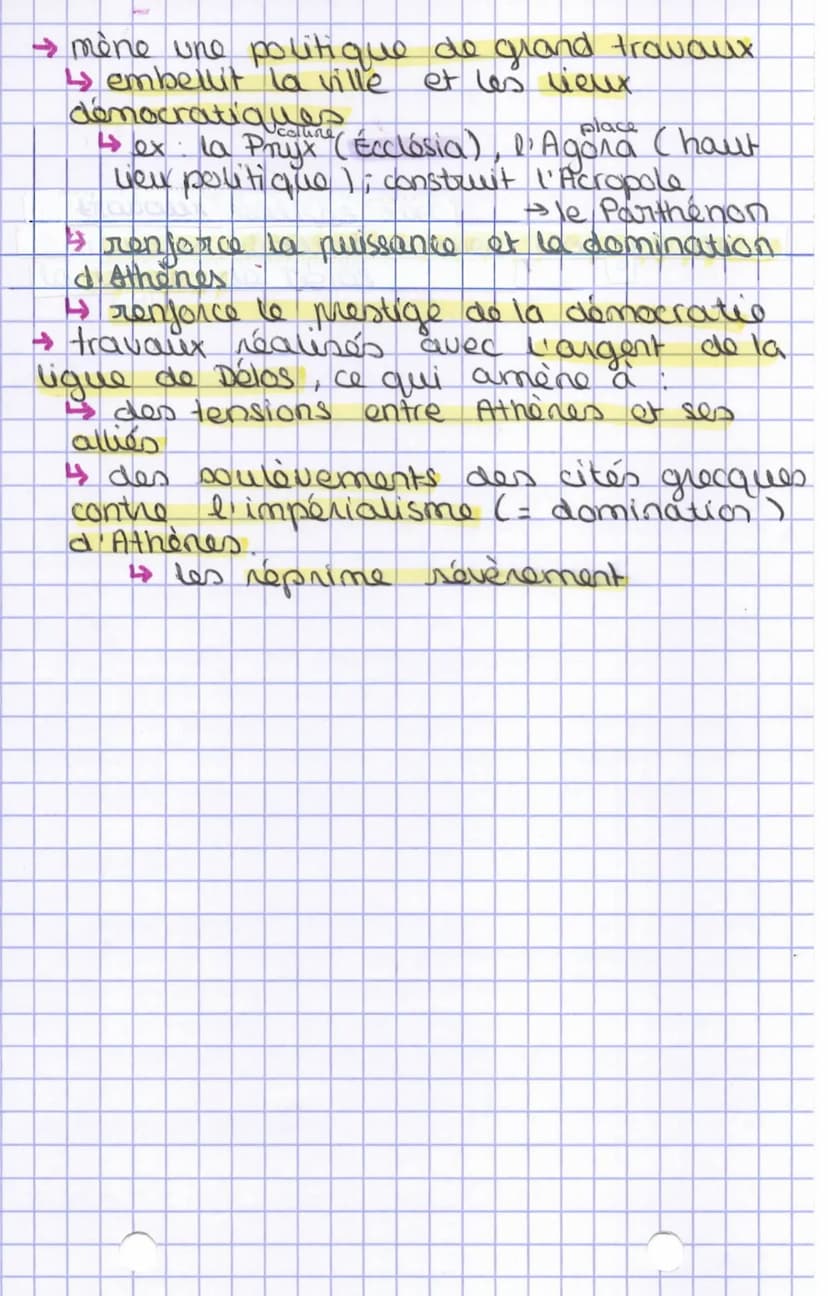 → mène une politique de grand travaux
↳ embellit la ville et les lieux
démocratiques
colline place
↳ ex : la Pnyx (Écclésia), l'Agora (haut
lieu politique) ; construit l'Acropole
→ le Parthénon
↳ renforce la puissance et la domination
d'Athènes
↳ renforce le prestige de la démocratie
→ travaux réalisés avec l'argent de la
ligue de Délos, ce qui amène à :
↳ des tensions entre Athènes et ses
alliés
↳ des soulèvements des cités grecques
contre l'impérialisme (= domination)
d'Athènes.
↳ les réprime sévèrement